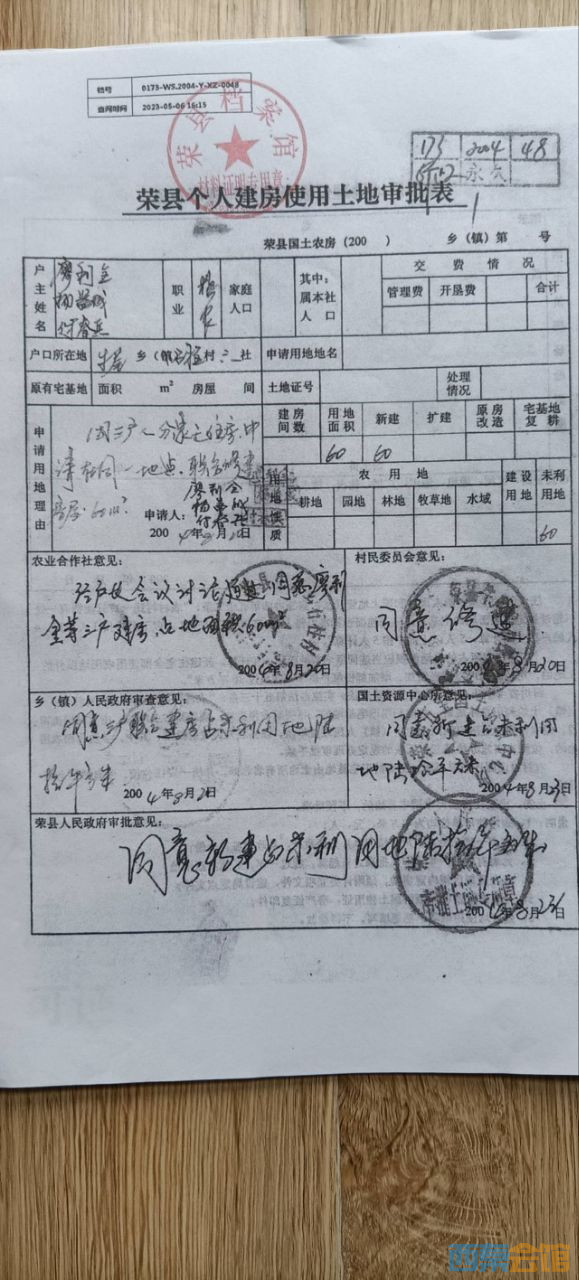 档号 0173-WS.2004-Y-XZ-0048
查阅时间 2023-05-06 16:15
荣县档案馆
材料证明专用章
173 2004 48
永久
荣县个人建房使用土地审批表
荣县国土农房(200 ) 乡(镇)第 号
户主姓名 廖利全
职业 务农 家庭人口
其中:属本社人口
交费情况
管理费 开垦费 合计
户口所在地 乡(镇) 村 社 申请用地地名
原有宅基地 面积 m² 房屋 间 土地证号 处理情况
申请用地理由
因三户人分家无住房.申
请在同一地点.联合修建
住房.60m²
申请人: 廖利全
2004年8月20日
建房间数 用地面积 新建 扩建 原房改造 宅基地复耕
60 60
用地性质 农用地 建设用地 未利用地
耕地 园地 林地 牧草地 水域
60
农业合作社意见:
经户主会议讨论通过同意廖利
全等三户建房占地面积60m²
2004年8月20日
村民委员会意见:
同意修建
2004年8月20日
乡(镇)人民政府审查意见:
同意三户联合建房占未利用地陆
拾平方米 2004年8月21日
国土资源中心所意见:
同意新建占未利用
地陆拾平方米
2004年8月23日
荣县人民政府审批意见:
同意新建占未利用地陆拾平方米
2004年8月23日
西祠会馆